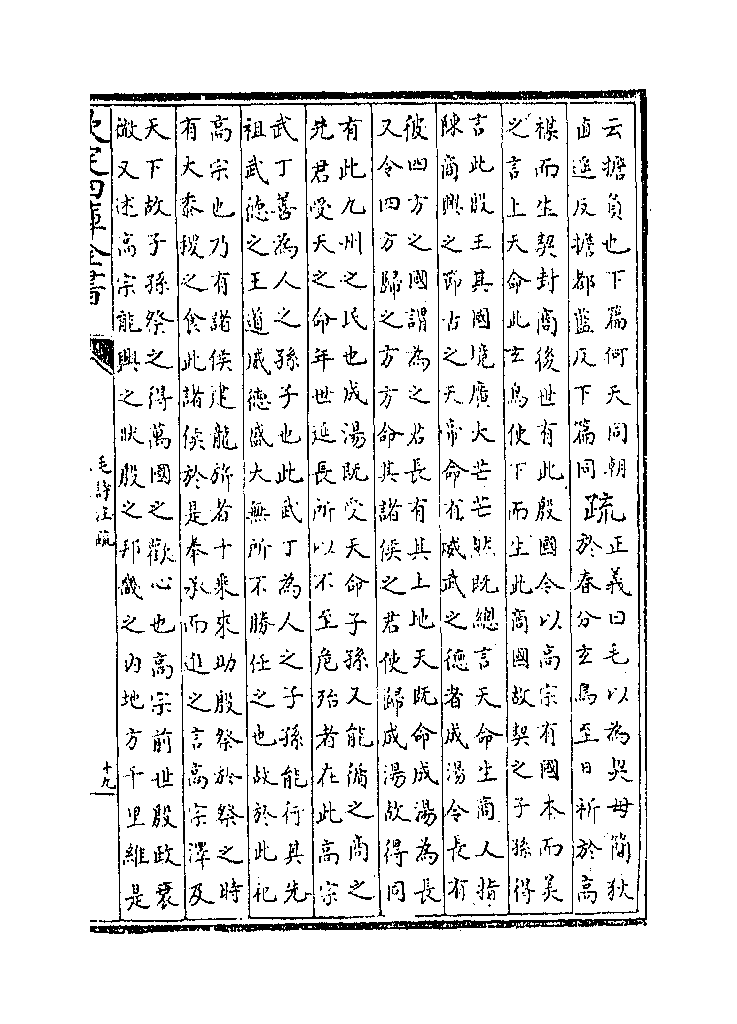 云擔負也下篇何天同朝
卣逕反擔都藍反下篇同
疏
正義曰毛以為契母簡狄
於春分玄鳥至日祈於高
禖而生契封商後世有此殷國今以高宗有國本而美
之言上天命此玄鳥使下而生此商國故契之子孫得
言此殷王其國境廣大芒芒然既總言天命生商人指
陳商興之節古之天帝命有威武之德者成湯令長有
彼四方之國謂為之君長有其土地天既命成湯為長
又令四方歸之方方命其諸侯之君使歸成湯故得同
有此九州之民也成湯既受天命子孫又能循之商之
先君受天之命年世延長所以不至危殆者在此高宗
武丁善為人之孫子也此武丁為人之子孫能行其先
祖武德之王道威德盛大無所不勝任之也故於此祀
高宗也乃有諸侯建龍旂者十乘來助殷祭於祭之時
有大黍稷之食此諸侯於是奉承而進之言高宗澤及
天下故子孫祭之得萬國之歡心也高宗前世殷政衰
微又述高宗能興之狀殷之邦畿之內地方千里維是
欽定四庫全書
毛詩注疏
十九